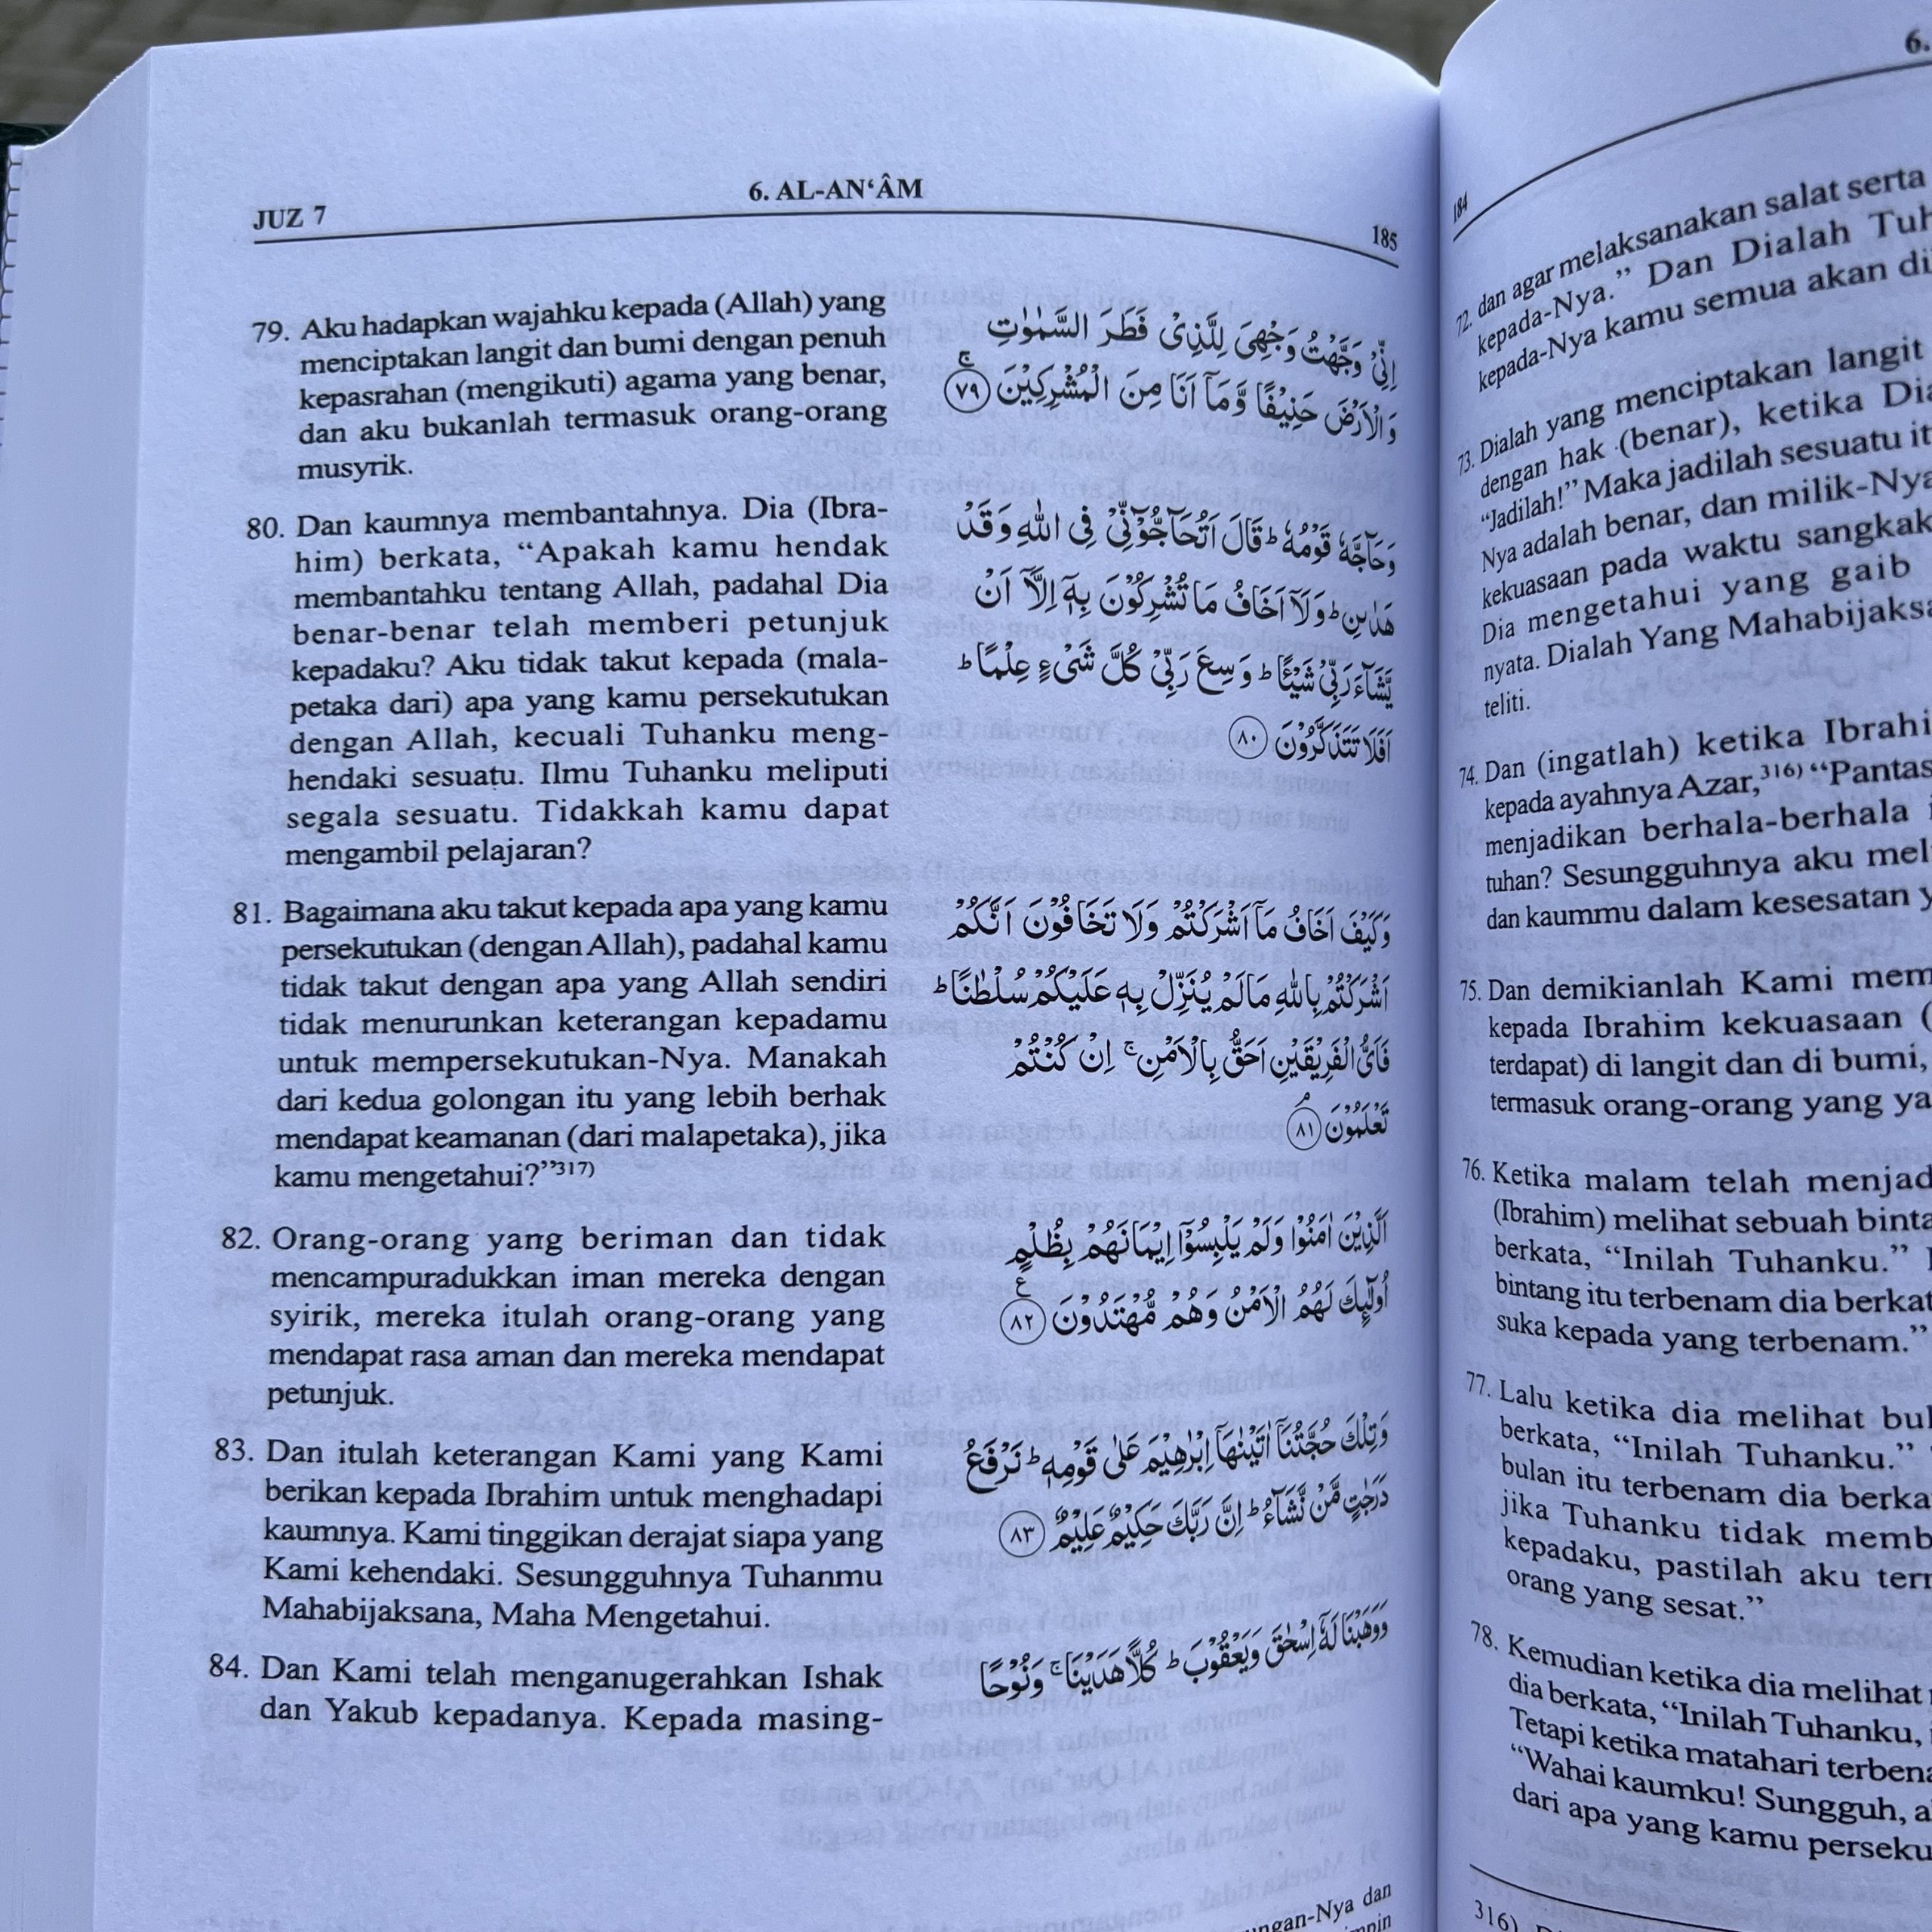 JUZ 7
6. AL-AN‘ÂM
185
79. Aku hadapkan wajahku kepada (Allah) yang
menciptakan langit dan bumi dengan penuh
kepasrahan (mengikuti) agama yang benar,
dan aku bukanlah termasuk orang-orang
musyrik.
اِنِّيْ وَجَّهْتُ وَجْهِيَ لِلَّذِيْ فَطَرَ السَّمٰوٰتِ
وَالْاَرْضَ حَنِيْفًا وَّمَآ اَنَا۠ مِنَ الْمُشْرِكِيْنَۚ ٧٩
80. Dan kaumnya membantahnya. Dia (Ibra-
him) berkata, “Apakah kamu hendak
membantahku tentang Allah, padahal Dia
benar-benar telah memberi petunjuk
kepadaku? Aku tidak takut kepada (mala-
petaka dari) apa yang kamu persekutukan
dengan Allah, kecuali Tuhanku meng-
hendaki sesuatu. Ilmu Tuhanku meliputi
segala sesuatu. Tidakkah kamu dapat
mengambil pelajaran?
وَحَاۤجَّهٗ قَوْمُهٗ ۗقَالَ اَتُحَاۤجُّوْۤنِّيْ فِى اللّٰهِ وَقَدْ
هَدٰىنِۗ وَلَآ اَخَافُ مَا تُشْرِكُوْنَ بِهٖٓ اِلَّآ اَنْ
يَّشَاۤءَ رَبِّيْ شَيْـًٔا ۗوَسِعَ رَبِّيْ كُلَّ شَيْءٍ عِلْمًا ۗ
اَفَلَا تَتَذَكَّرُوْنَ ٨٠
81. Bagaimana aku takut kepada apa yang kamu
persekutukan (dengan Allah), padahal kamu
tidak takut dengan apa yang Allah sendiri
tidak menurunkan keterangan kepadamu
untuk mempersekutukan-Nya. Manakah
dari kedua golongan itu yang lebih berhak
mendapat keamanan (dari malapetaka), jika
kamu mengetahui?”317)
وَكَيْفَ اَخَافُ مَآ اَشْرَكْتُمْ وَلَا تَخَافُوْنَ اَنَّكُمْ
اَشْرَكْتُمْ بِاللّٰهِ مَا لَمْ يُنَزِّلْ بِهٖ عَلَيْكُمْ سُلْطٰنًا ۗ
فَاَيُّ الْفَرِيْقَيْنِ اَحَقُّ بِالْاَمْنِۚ اِنْ كُنْتُمْ
تَعْلَمُوْنَۘ ٨١
82. Orang-orang yang beriman dan tidak
mencampuradukkan iman mereka dengan
syirik, mereka itulah orang-orang yang
mendapat rasa aman dan mereka mendapat
petunjuk.
اَلَّذِيْنَ اٰمَنُوْا وَلَمْ يَلْبِسُوْٓا اِيْمَانَهُمْ بِظُلْمٍ
اُولٰۤىِٕكَ لَهُمُ الْاَمْنُ وَهُمْ مُّهْتَدُوْنَ ࣖ ٨٢
83. Dan itulah keterangan Kami yang Kami
berikan kepada Ibrahim untuk menghadapi
kaumnya. Kami tinggikan derajat siapa yang
Kami kehendaki. Sesungguhnya Tuhanmu
Mahabijaksana, Maha Mengetahui.
وَتِلْكَ حُجَّتُنَآ اٰتَيْنٰهَآ اِبْرٰهِيْمَ عَلٰى قَوْمِهٖۗ نَرْفَعُ
دَرَجٰتٍ مَّنْ نَّشَاۤءُۗ اِنَّ رَبَّكَ حَكِيْمٌ عَلِيْمٌ ٨٣
84. Dan Kami telah menganugerahkan Ishak
dan Yakub kepadanya. Kepada masing-
وَوَهَبْنَا لَهٗٓ اِسْحٰقَ وَيَعْقُوْبَۗ كُلًّا هَدَيْنَاۚ وَنُوْحًا
ngan-Nya dan
6.
184
72. dan agar melaksanakan salat serta
kepada-Nya.” Dan Dialah
kepada-Nya kamu semua akan
73. Dialah yang menciptakan langit
dengan hak (benar), ketika
“Jadilah!” Maka jadilah sesuatu
Nya adalah benar, dan milik-Nya
kekuasaan pada waktu
Dia mengetahui yang gaib
nyata. Dialah Yang
teliti.
74. Dan (ingatlah) ketika
kepada ayahnya Azar,316)
menjadikan berhala-berhala
tuhan? Sesungguhnya aku
dan kaummu dalam kesesatan
75. Dan demikianlah Kami
kepada Ibrahim kekuasaan
terdapat) di langit dan di bumi,
termasuk orang-orang yang
76. Ketika malam telah
(Ibrahim) melihat sebuah
berkata, “Inilah Tuhanku.”
bintang itu terbenam dia
suka kepada yang terbenam.”
77. Lalu ketika dia melihat
berkata, “Inilah Tuhanku.”
bulan itu terbenam dia
jika Tuhanku tidak
kepadaku, pastilah aku
orang yang sesat.”
78. Kemudian ketika dia melihat
dia berkata, “Inilah Tuhanku,
Tetapi ketika matahari
“Wahai kaumku! Sungguh,
dari apa yang kamu
316)